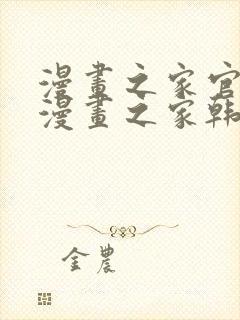 漫畫之家官
漫畫之家韩
金農